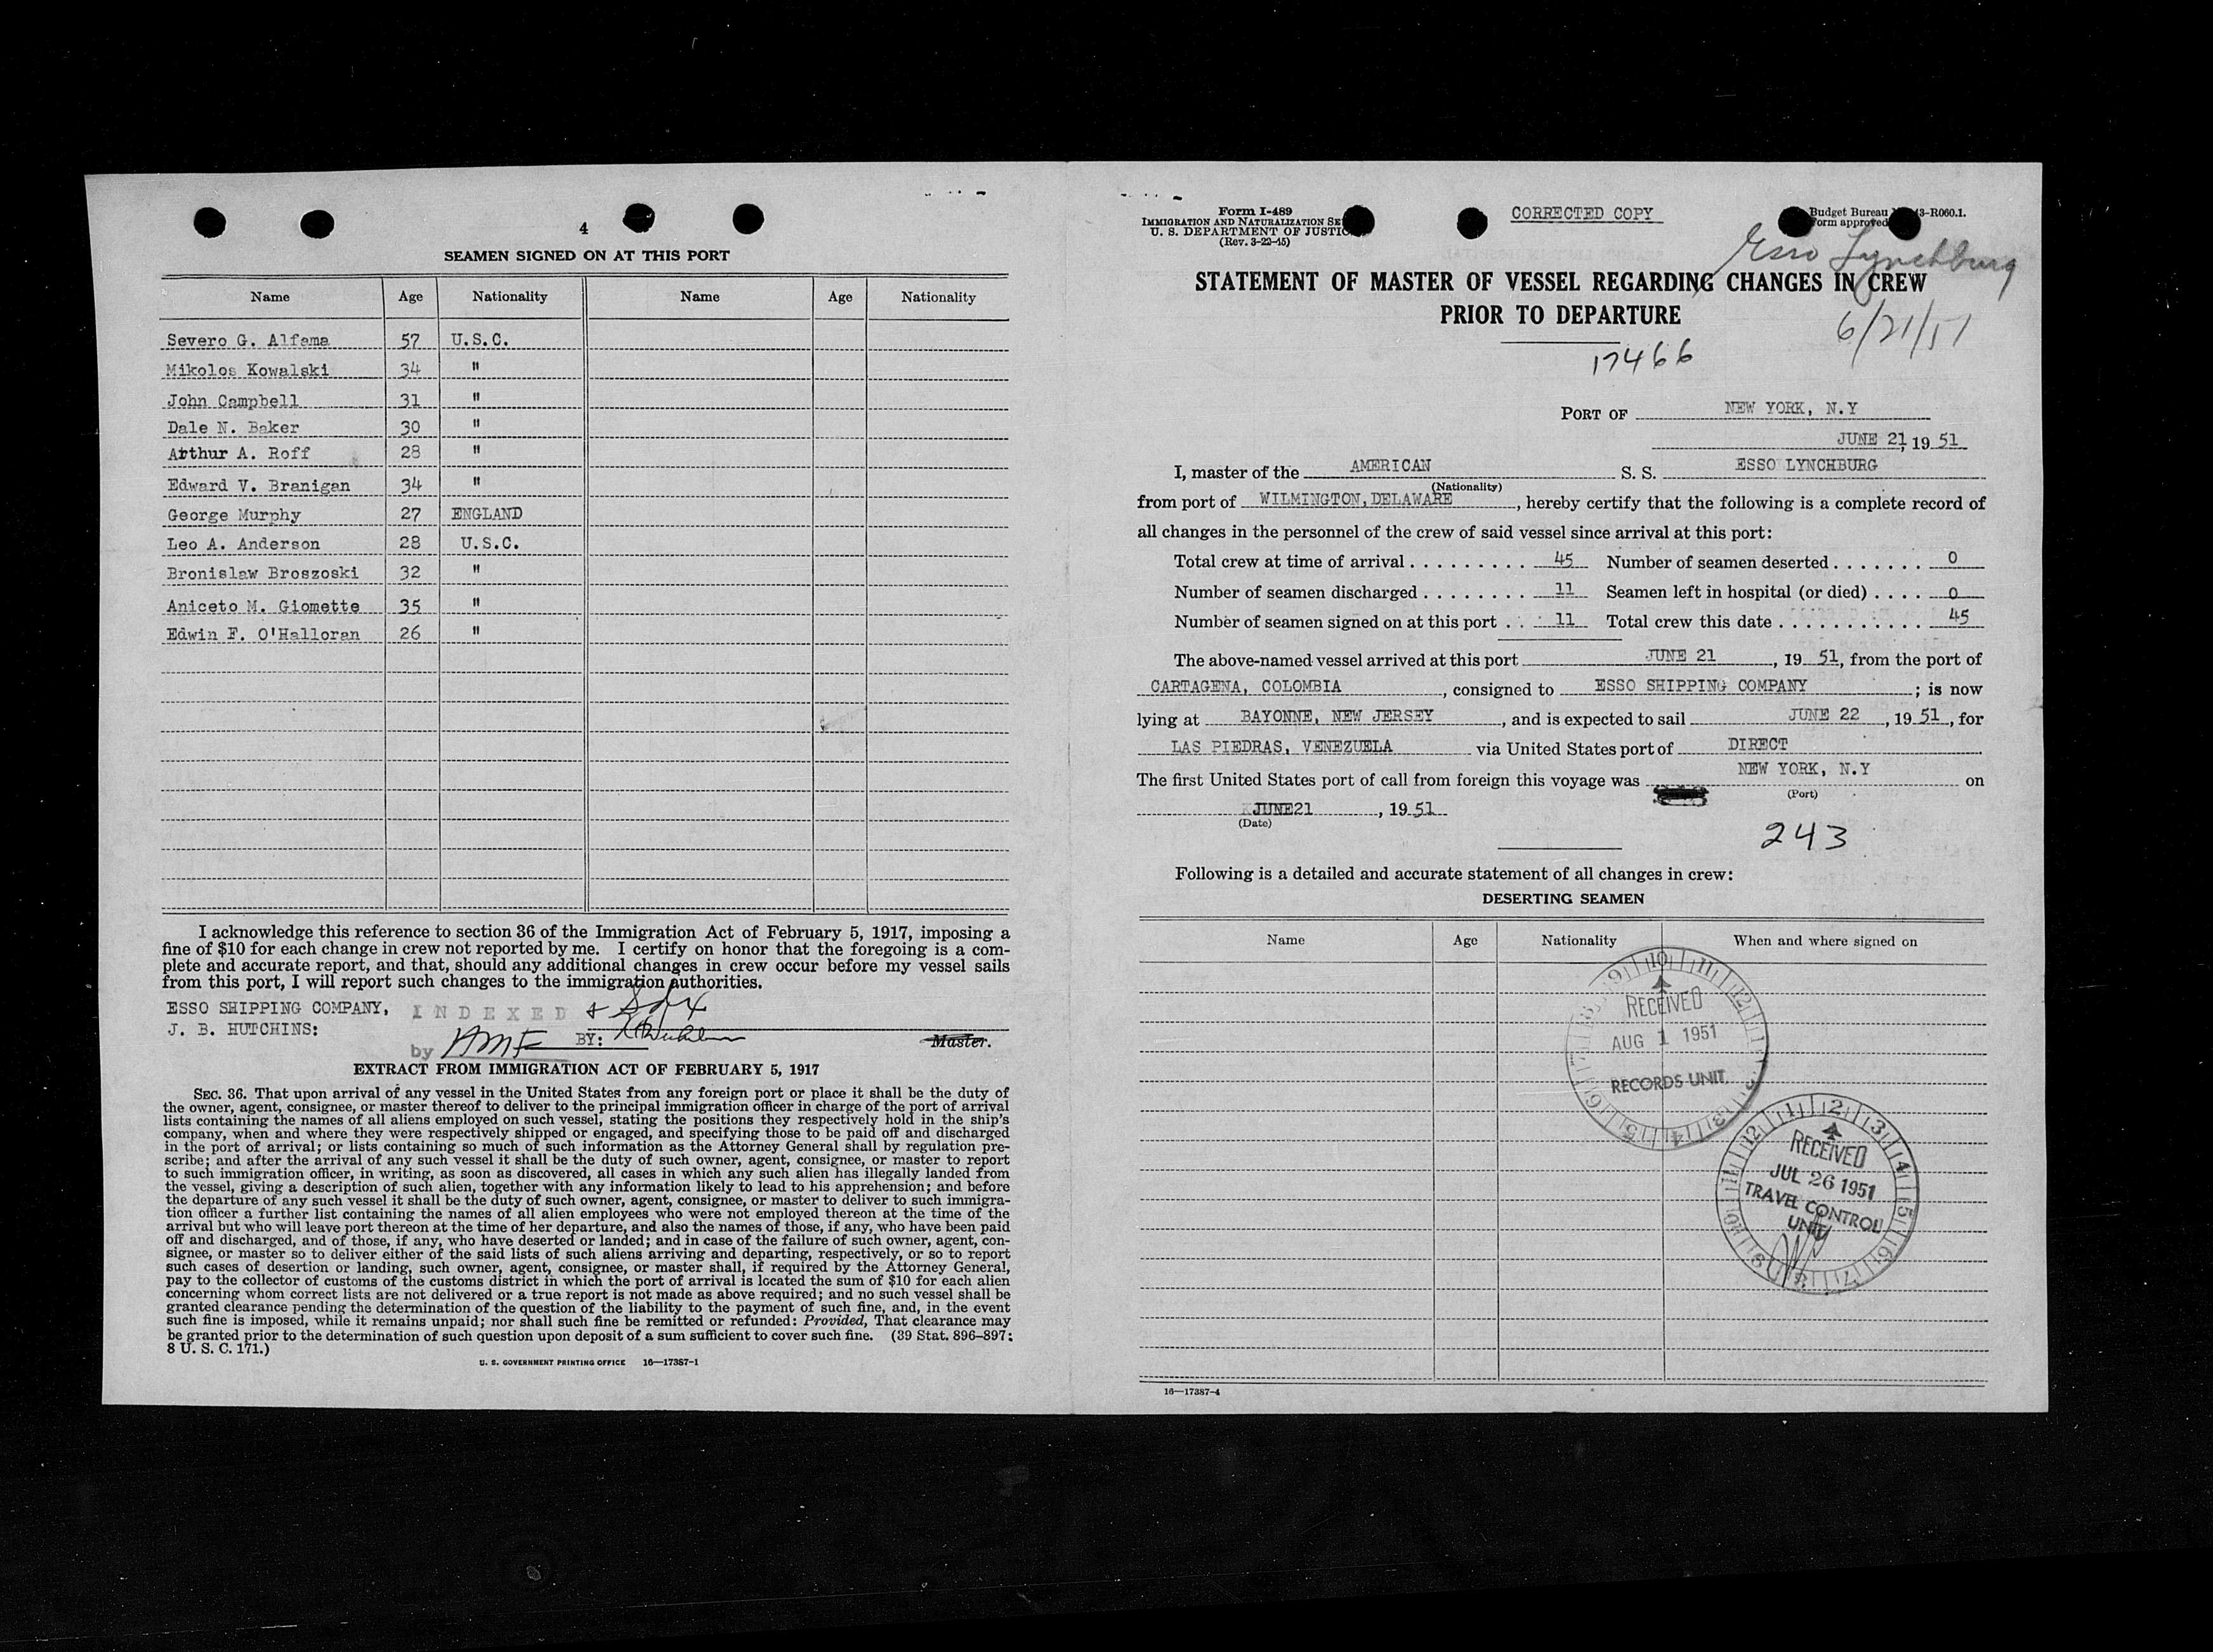 4
SEAMEN SIGNED ON AT THIS PORT
Name Age Nationality Name Age Nationality
Severo G. Alfama 57 U.S.C.
Mikolos Kowalski 34 "
John Campbell 31 "
Dale N. Baker 30 "
Arthur A. Roff 28 "
Edward V. Branigan 34 "
George Murphy 27 ENGLAND
Leo A. Anderson 28 U.S.C.
Bronislaw Broszoski 32 "
Aniceto M. Giomette 35 "
Edwin F. O'Halloran 26 "
I acknowledge this reference to section 36 of the Immigration Act of February 5, 1917, imposing a
fine of $10 for each change in crew not reported by me. I certify on honor that the foregoing is a com-
plete and accurate report, and that, should any additional changes in crew occur before my vessel sails
from this port, I will report such changes to the immigration authorities.
ESSO SHIPPING COMPANY, INDEXED
J. B. HUTCHINS:
by BY: Master.
EXTRACT FROM IMMIGRATION ACT OF FEBRUARY 5, 1917
SEC. 36. That upon arrival of any vessel in the United States from any foreign port or place it shall be the duty of
the owner, agent, consignee, or master thereof to deliver to the principal immigration officer in charge of the port of arrival
lists containing the names of all aliens employed on such vessel, stating the positions they respectively hold in the ship's
company, when and where they were respectively shipped or engaged, and specifying those to be paid off and discharged
in the port of arrival; or lists containing so much of such information as the Attorney General shall by regulation pre-
scribe; and after the arrival of any such vessel it shall be the duty of such owner, agent, consignee, or master to report
to such immigration officer, in writing, as soon as discovered, all cases in which any such alien has illegally landed from
the vessel, giving a description of such alien, together with any information likely to lead to his apprehension; and before
the departure of any such vessel it shall be the duty of such owner, agent, consignee, or master to deliver to such immigra-
tion officer a further list containing the names of all alien employees who were not employed thereon at the time of the
arrival but who will leave port thereon at the time of her departure, and also the names of those, if any, who have been paid
off and discharged, and of those, if any, who have deserted or landed; and in case of the failure of such owner, agent, con-
signee, or master so to deliver either of the said lists of such aliens arriving and departing, respectively, or so to report
such cases of desertion or landing, such owner, agent, consignee, or master shall, if required by the Attorney General,
pay to the collector of customs of the customs district in which the port of arrival is located the sum of $10 for each alien
concerning whom correct lists are not delivered or a true report is not made as above required; and no such vessel shall be
granted clearance pending the determination of the question of the liability to the payment of such fine, and, in the event
such fine is imposed, while it remains unpaid; nor shall such fine be remitted or refunded: Provided, That clearance may
be granted prior to the determination of such question upon deposit of a sum sufficient to cover such fine. (39 Stat. 896–897;
8 U. S. C. 171.)
U. S. GOVERNMENT PRINTING OFFICE 16—17387-1
Form I-489
IMMIGRATION AND NATURALIZATION SE
U. S. DEPARTMENT OF JUSTIC
(Rev. 3-22-45)
CORRECTED COPY
Budget Bureau 43-R060.1.
Form approved
Esso Lynchburg
STATEMENT OF MASTER OF VESSEL REGARDING CHANGES IN CREW
PRIOR TO DEPARTURE
6/21/51
17466
PORT OF NEW YORK, N.Y
JUNE 21, 19 51
I, master of the AMERICAN S. S. ESSO LYNCHBURG
(Nationality)
from port of WILMINGTON, DELAWARE, hereby certify that the following is a complete record of
all changes in the personnel of the crew of said vessel since arrival at this port:
Total crew at time of arrival 45 Number of seamen deserted 0
Number of seamen discharged 11 Seamen left in hospital (or died) 0
Number of seamen signed on at this port 11 Total crew this date 45
The above-named vessel arrived at this port JUNE 21, 19 51, from the port of
CARTAGENA, COLOMBIA, consigned to ESSO SHIPPING COMPANY; is now
lying at BAYONNE, NEW JERSEY, and is expected to sail JUNE 22, 19 51, for
LAS PIEDRAS, VENEZUELA via United States port of DIRECT
The first United States port of call from foreign this voyage was NEW YORK, N.Y on
(Port)
JUNE21, 19 51
(Date)
243
Following is a detailed and accurate statement of all changes in crew:
DESERTING SEAMEN
Name Age Nationality When and where signed on
RECEIVED
AUG 1 1951
RECORDS UNIT
RECEIVED
JUL 26 1951
TRAVEL CONTROL
UNIT
16—17387-4